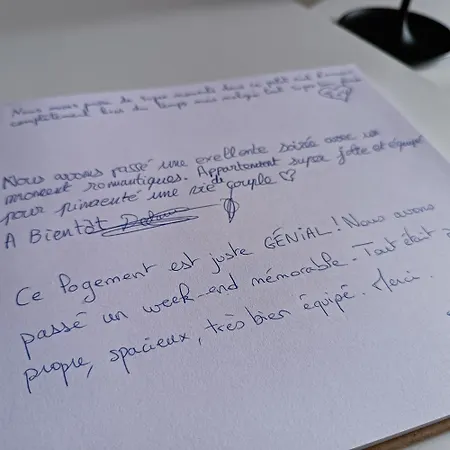 Nous avons passé de super moments dans ce petit nid
complètement hors du temps mais malgré tout super
Nous avons passé une exellente soirée avec un
moment romantiques. Appartement super jolie et équipé
pour pimenté une vie di couple ♡
A Bientôt
Ce logement est juste GÉNIAL! Nous avons
passé un week-end mémorable. Tout était
propre, spacieux, très bien équipé. Merci.